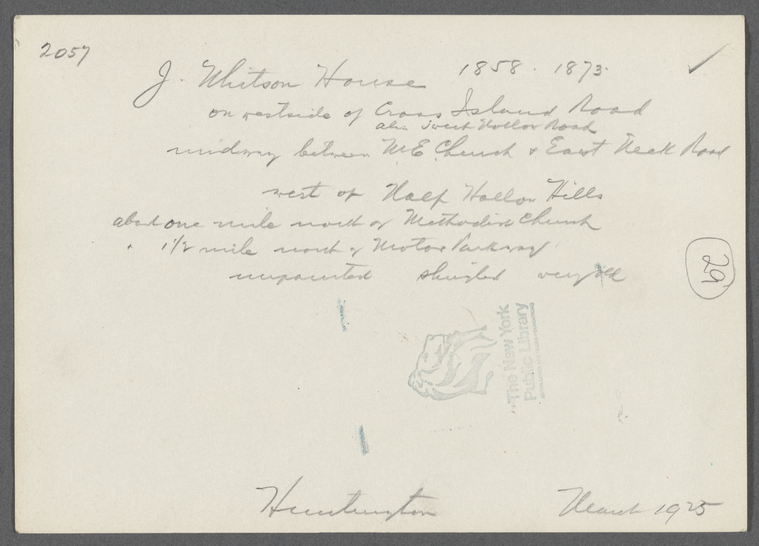 2057
J. Whitson House 1858 - 1873
on westside of Cross Island Road
also Sweet Hollow Road
midway between M E Church & East Neck Road
west of Half Hollow Hills
about one mile north of Methodist Church
" 1 1/2 mile north of Motor Parkway
unpainted shingled very old
29
The New York
Public Library
Huntington March 1925